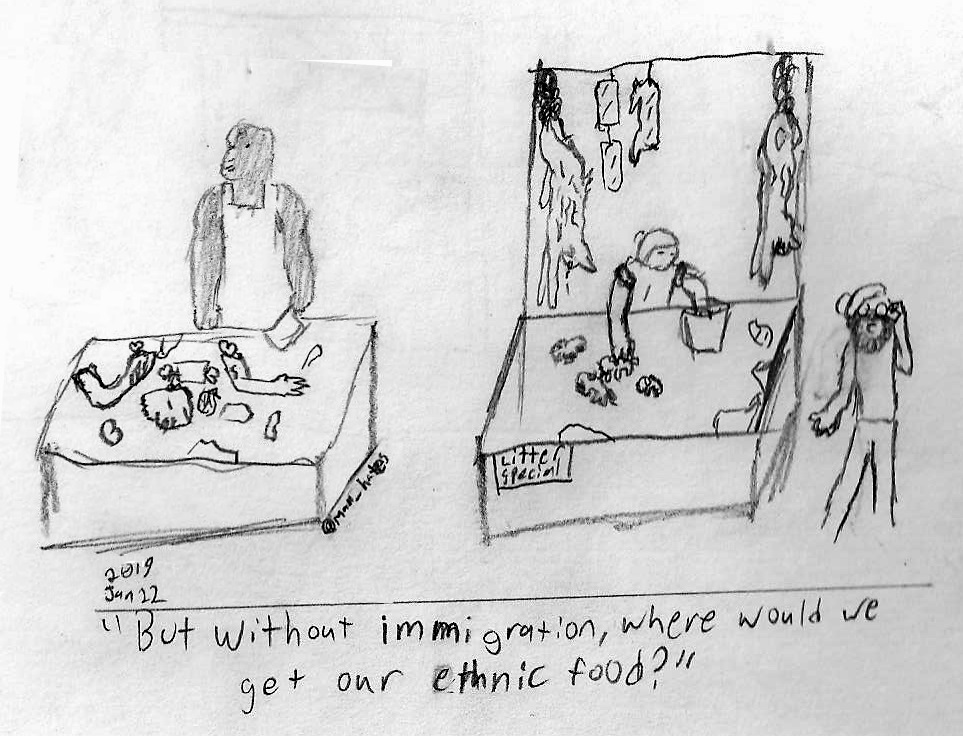 Litter
special
@man_hates
2019
Jan 22
"But without immigration, where would we
get our ethnic food?"